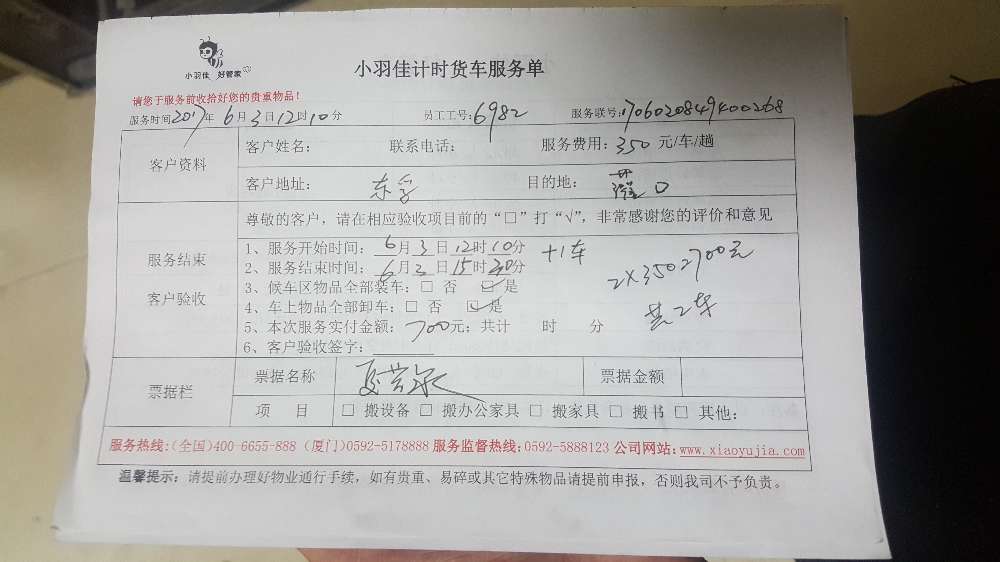 小羽佳 好管家
小羽佳计时货车服务单
请您于服务前收拾好您的贵重物品！
服务时间2017年6月3日12时10分 员工工号：6982 服务联号：1706020849400268
客户资料
客户姓名： 联系电话： 服务费用：350元/车/趟
客户地址：东孚 目的地：
尊敬的客户，请在相应验收项目前的“□”打“√”，非常感谢您的评价和意见
服务结束
客户验收
1、服务开始时间：6月3日12时10分 +1车
2、服务结束时间：6月3日15时30分 2×350=700元
3、候车区物品全部装车：□ 否 ☑ 是
4、车上物品全部卸车：□ 否 ☑ 是 共2车
5、本次服务实付金额：700元；共计 时 分
6、客户验收签字：
票据栏
票据名称 票据金额
项 目 □ 搬设备 □ 搬办公家具 □ 搬家具 □ 搬书 □ 其他：
服务热线：(全国)400-6655-888 (厦门)0592-5178888 服务监督热线：0592-5888123 公司网站：www.xiaoyujia.com
温馨提示：请提前办理好物业通行手续，如有贵重、易碎或其它特殊物品请提前申报，否则我司不予负责。